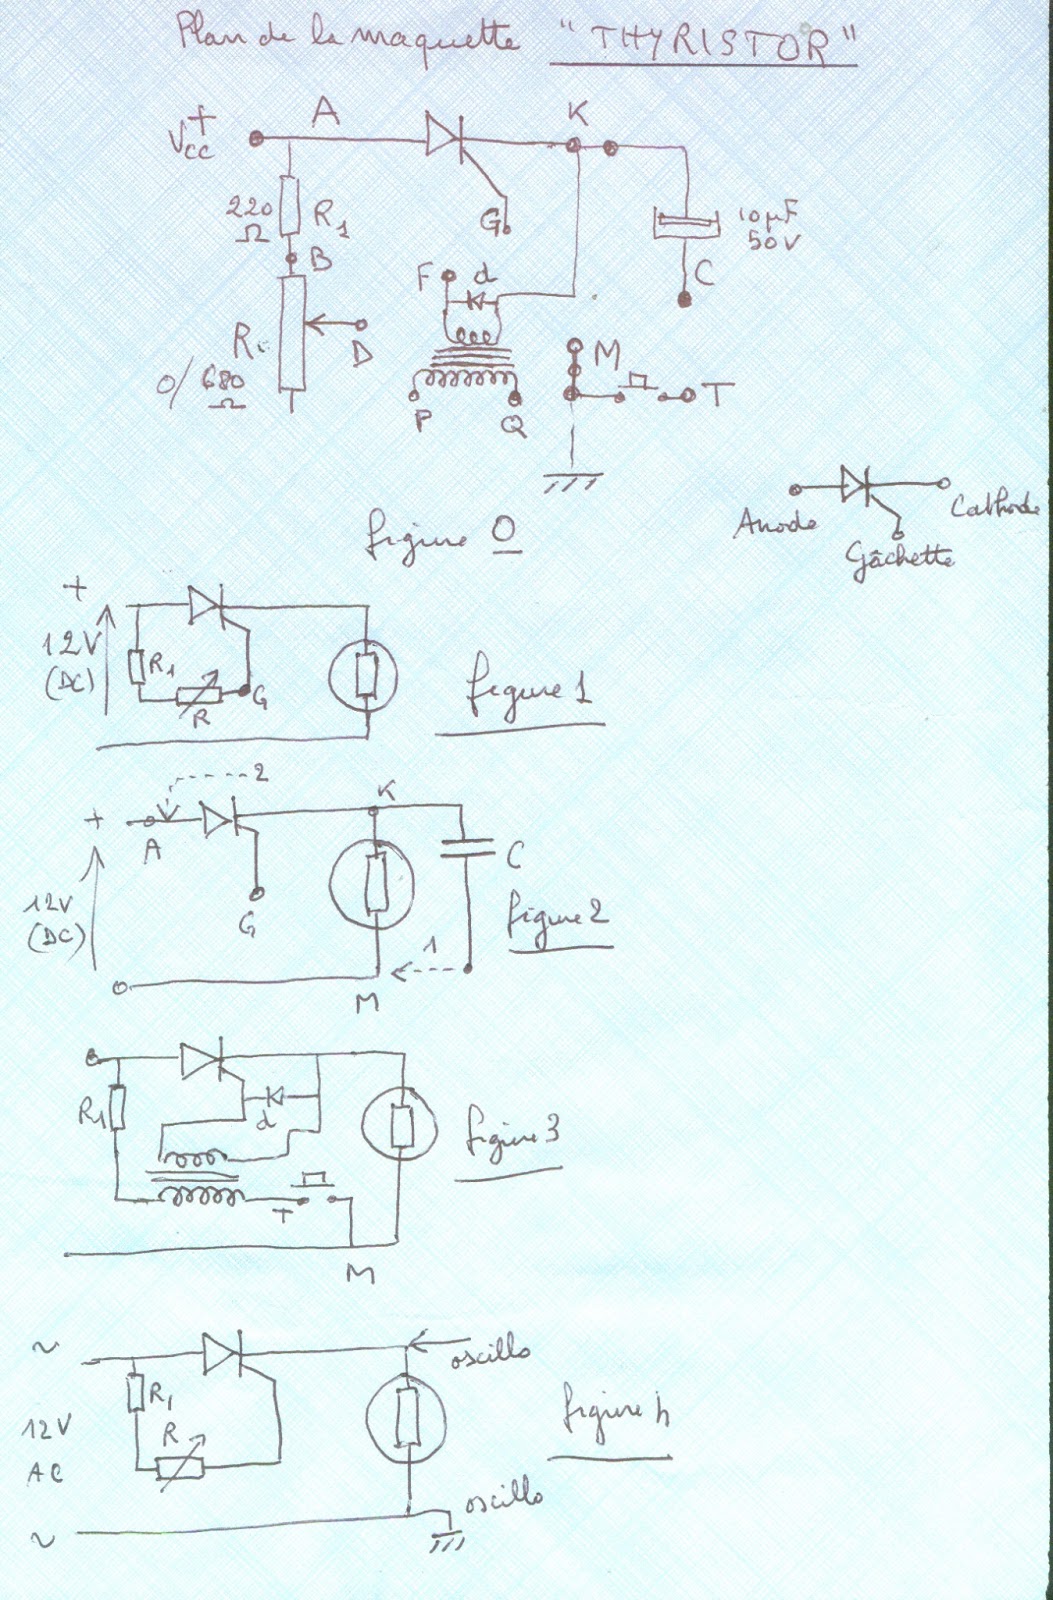 Plan de la maquette "THYRISTOR"
Vcc + A K
220 Ω R1 G 10µF 50V
B F d C
R 0/680 Ω D M
P Q T
figure 0
Anode Cathode
Gâchette
+
12V (DC) R1 R G figure 1
2
+ A K
12V (DC) G C figure 2
1
M
R1 d figure 3
T
M
~ oscillo
12V AC R1 R figure 4
~ oscillo